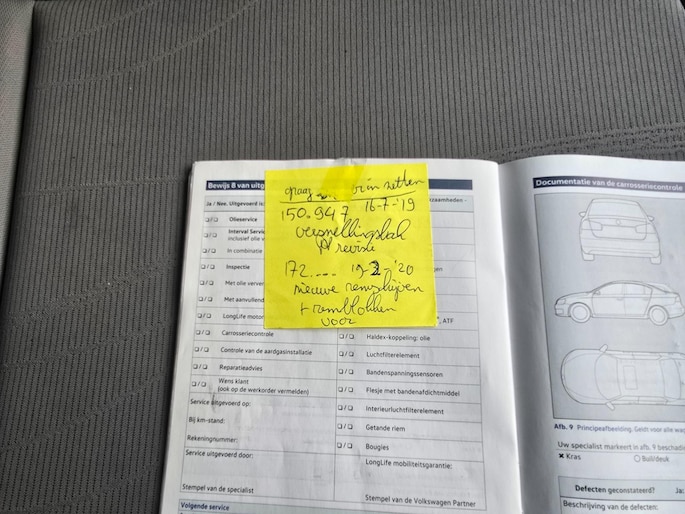 Bewijs 8 van uitg
graag er in zetten
150.947 16-7-'19
versnellingsbak
revisie
172.... 19-2-'20
nieuwe remschijven
+ remblokken
voor
Ja / Nee. Uitgevoerd is:
kzaamheden -
❏/❏ Olieservice
❏/❏ Interval Servic
inclusief olie v
❏/❏ In combinatie
❏/❏ Inspectie
gen
❏/❏ Met olie verver
❏/❏ Met aanvullend
❏/❏ LongLife motor
, ATF
❏/❏ Carrosseriecontrole
❏/❏ Controle van de aardgasinstallatie
❏/❏ Reparatieadvies
❏/❏ Wens klant
(ook op de werkorder vermelden)
❏/❏ Haldex-koppeling: olie
❏/❏ Luchtfilterelement
❏/❏ Bandenspanningssensoren
❏/❏ Flesje met bandenafdichtmiddel
❏/❏ Interieurluchtfilterelement
❏/❏ Getande riem
❏/❏ Bougies
Service uitgevoerd op:
Bij km-stand:
Rekeningnummer:
Service uitgevoerd door:
LongLife mobiliteitsgarantie:
Stempel van de specialist
Stempel van de Volkswagen Partner
Volgende service
Documentatie van de carrosseriecontrole
Afb. 9 Principeafbeelding. Geldt voor alle wag
Uw specialist markeert in afb. 9 beschadi
✖ Kras ○ Buil/deuk
Defecten geconstateerd? Ja:
Beschrijving van de defecten: